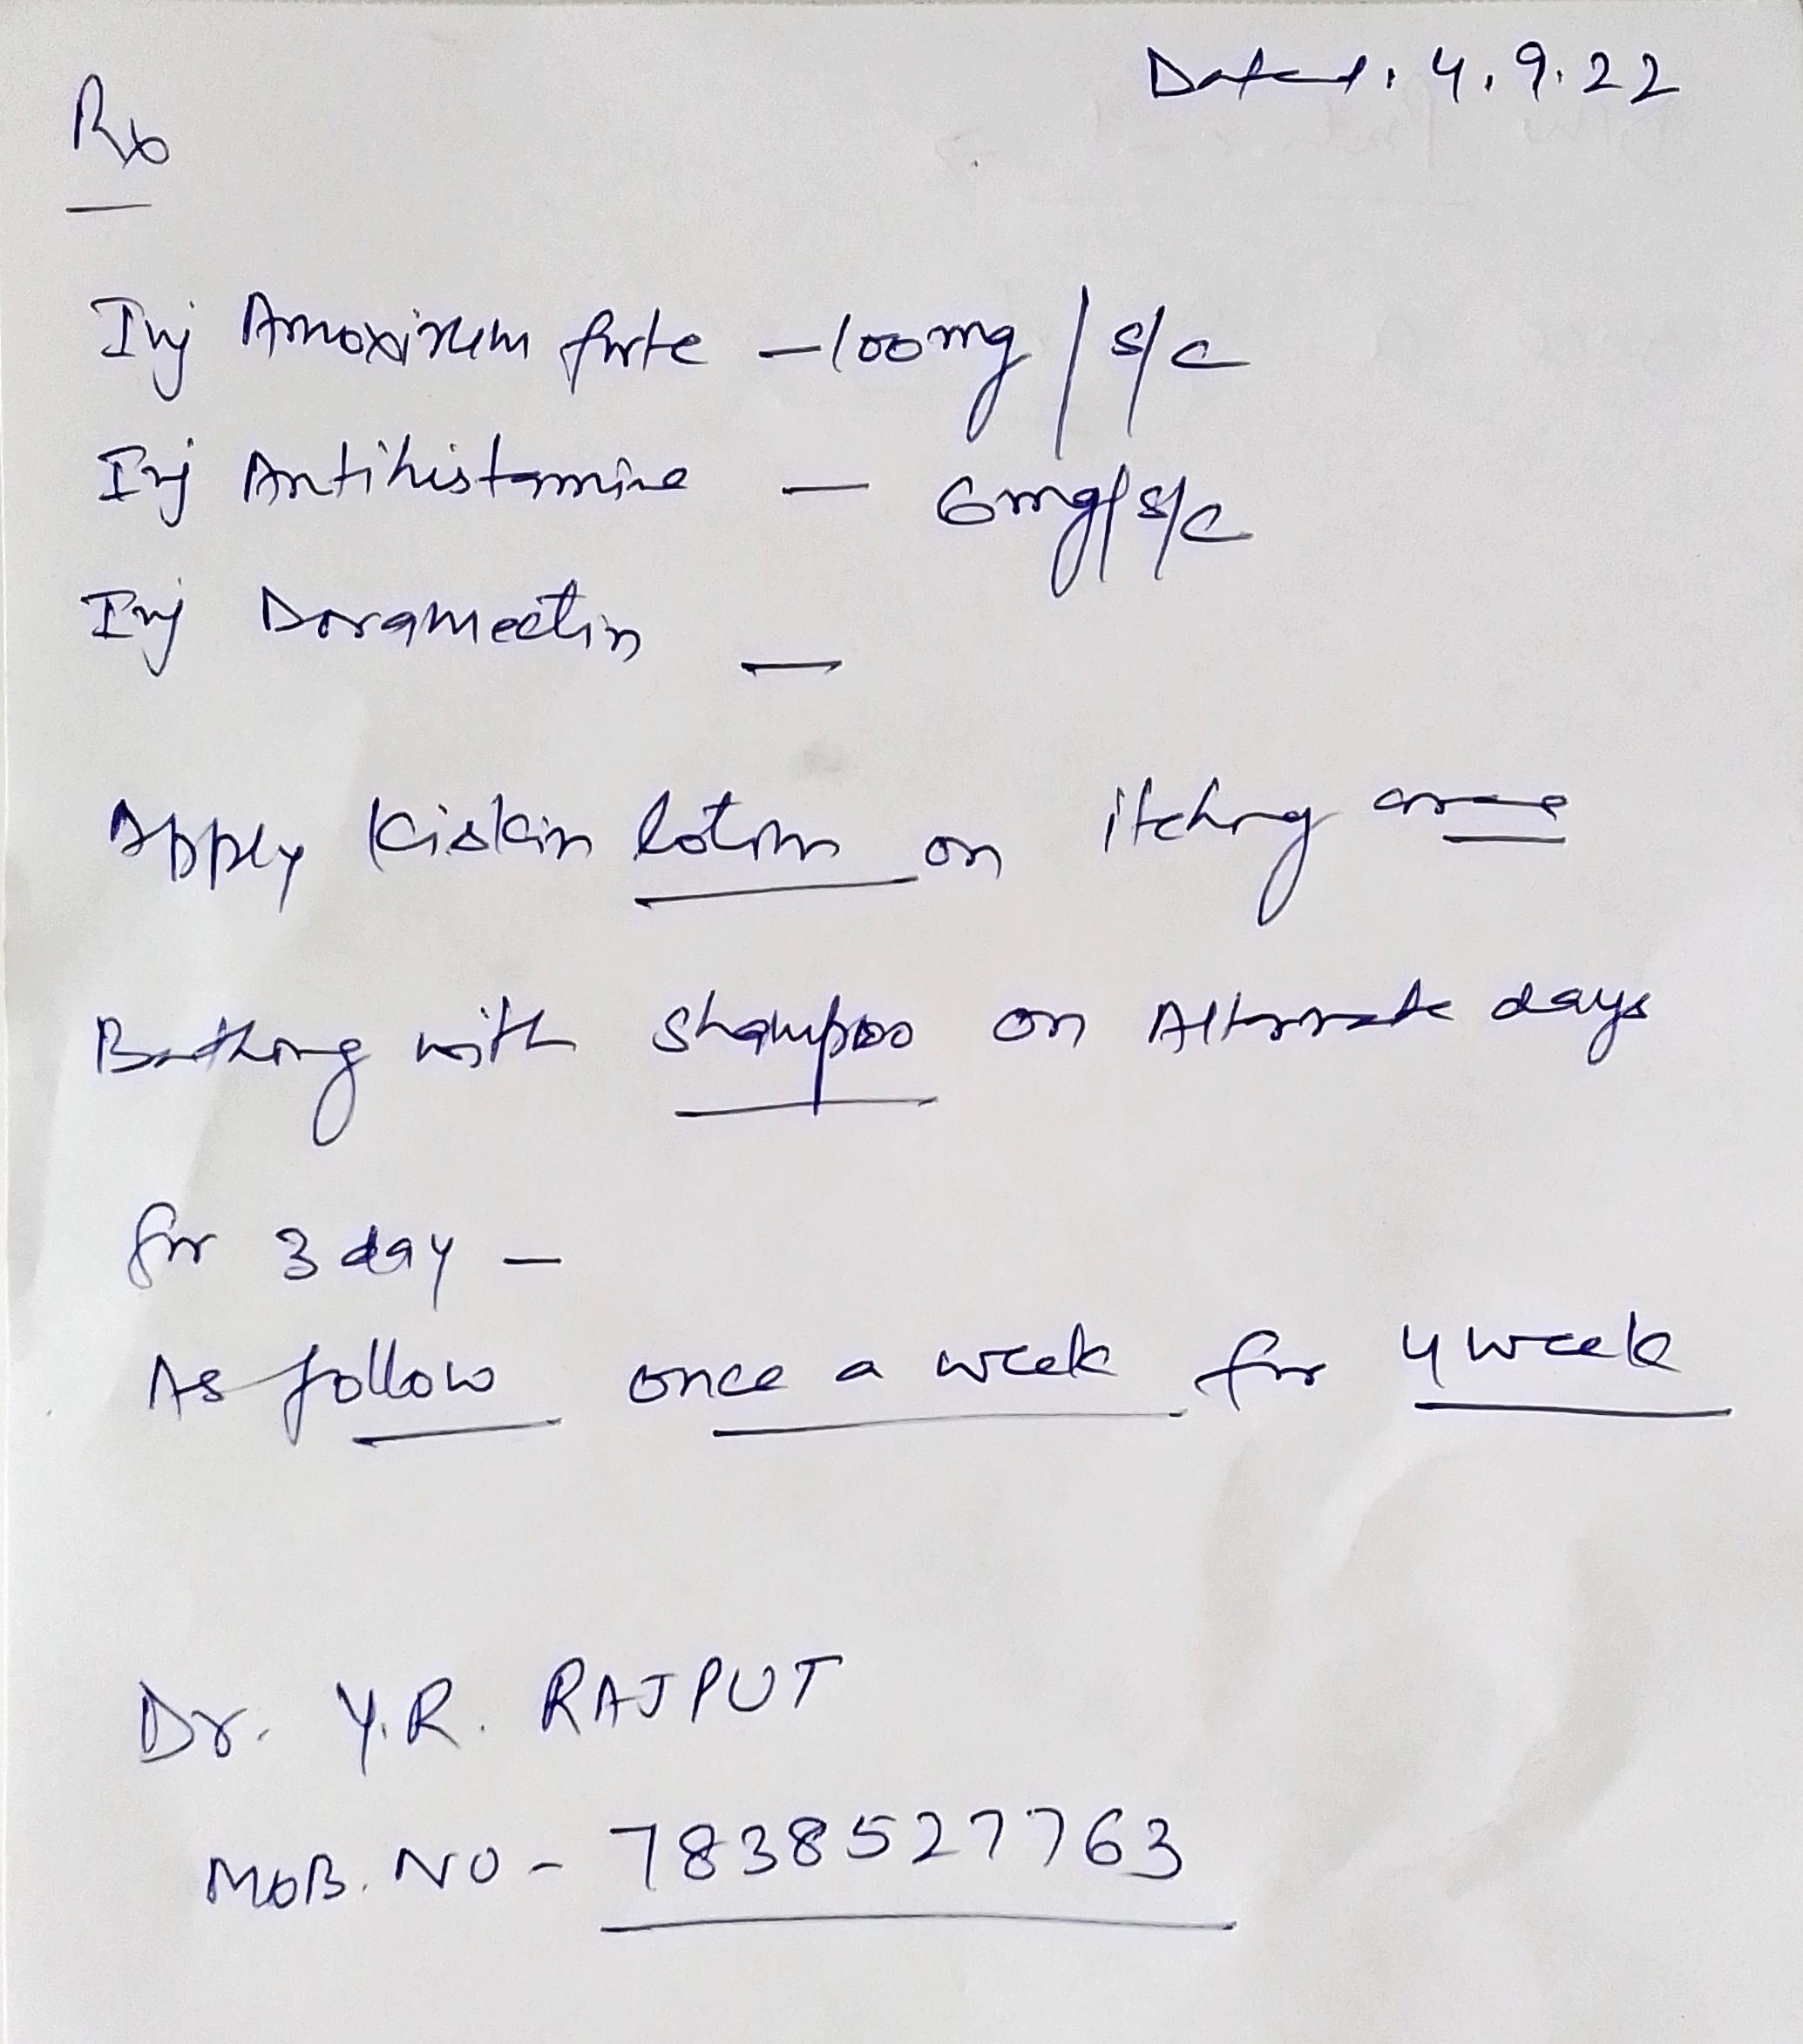 Dated: 4.9.22
Rx
Inj Amoxirum forte - 100mg / s/c
Inj Antihistamine - 6mg/s/c
Inj Doramectin -
Apply Kiskin lotion on itching area
Bathing with shampoo on Alternate days
for 3 day -
As follow once a week for 4 week
Dr. Y.R. RAJPUT
MOB. NO - 7838527763